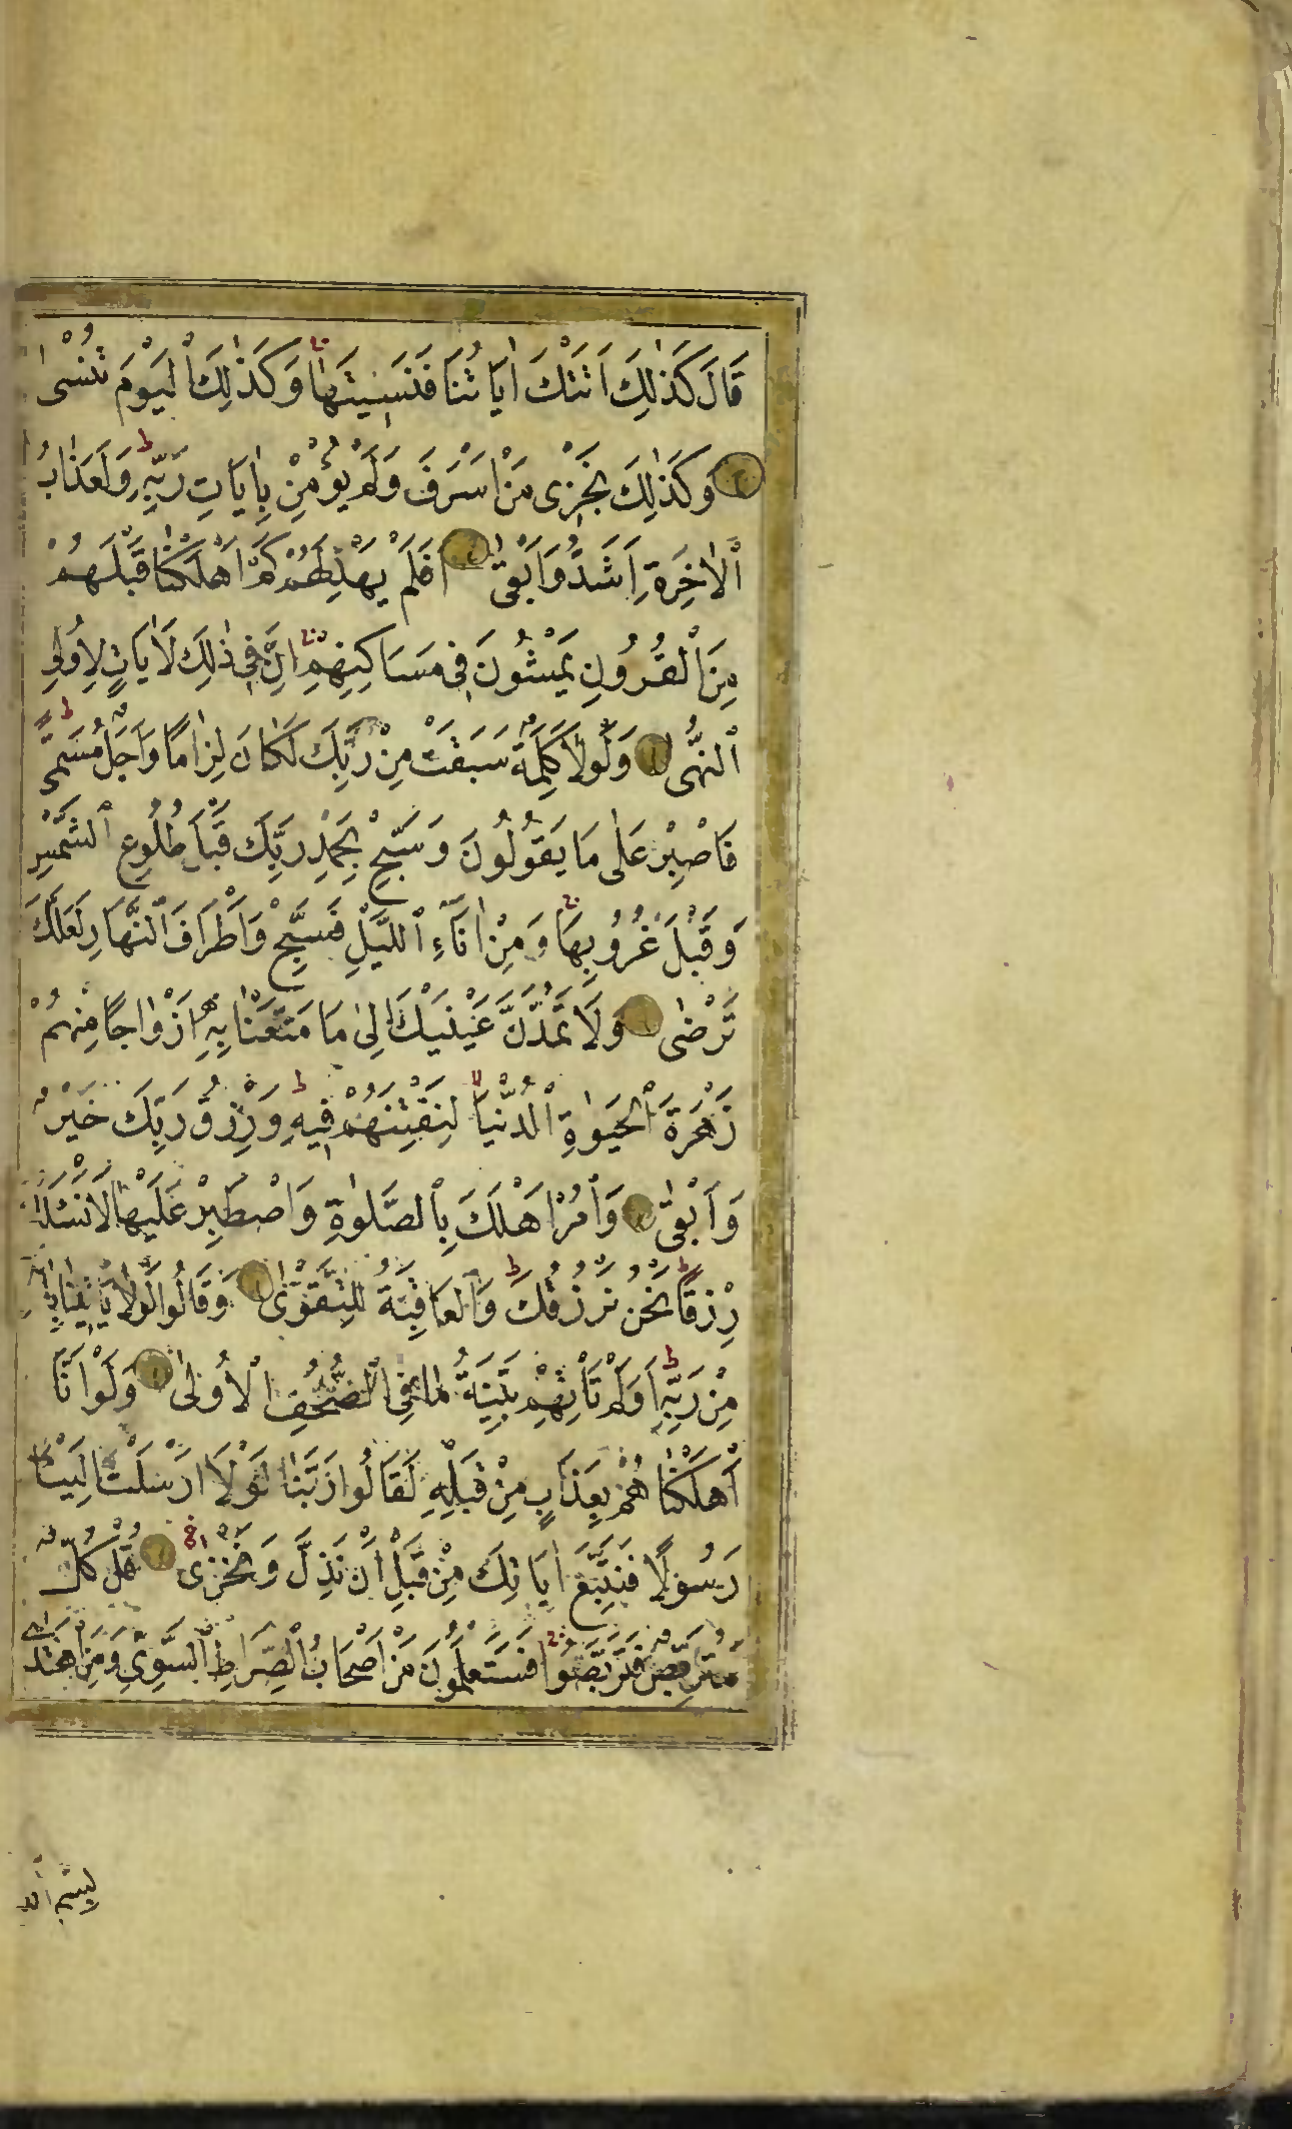 قَالَ كَذٰلِكَ اَتَتْكَ اٰيَاتُنَا فَنَسِيتَهَا وَكَذٰلِكَ الْيَوْمَ تُنْسٰى
وَكَذٰلِكَ نَجْزِى مَنْ اَسْرَفَ وَلَمْ يُؤْمِنْ بِاٰيَاتِ رَبِّهِ وَلَعَذَابُ
الْاٰخِرَةِ اَشَدُّ وَاَبْقٰى اَفَلَمْ يَهْدِ لَهُمْ كَمْ اَهْلَكْنَا قَبْلَهُمْ
مِنَ الْقُرُونِ يَمْشُونَ فِى مَسَاكِنِهِمْ اِنَّ فِى ذٰلِكَ لَاٰيَاتٍ لِاُولِى
النُّهٰى وَلَوْلَا كَلِمَةٌ سَبَقَتْ مِنْ رَبِّكَ لَكَانَ لِزَامًا وَاَجَلٌ مُسَمًّى
فَاصْبِرْ عَلٰى مَا يَقُولُونَ وَسَبِّحْ بِحَمْدِ رَبِّكَ قَبْلَ طُلُوعِ الشَّمْسِ
وَقَبْلَ غُرُوبِهَا وَمِنْ اٰنَآءِ الَّيْلِ فَسَبِّحْ وَاَطْرَافَ النَّهَارِ لَعَلَّكَ
تَرْضٰى وَلَا تَمُدَّنَّ عَيْنَيْكَ اِلٰى مَا مَتَّعْنَا بِهِ اَزْوَاجًا مِنْهُمْ
زَهْرَةَ الْحَيٰوةِ الدُّنْيَا لِنَفْتِنَهُمْ فِيهِ وَرِزْقُ رَبِّكَ خَيْرٌ
وَاَبْقٰى وَاْمُرْ اَهْلَكَ بِالصَّلٰوةِ وَاصْطَبِرْ عَلَيْهَا لَا نَسْئَلُكَ
رِزْقًا نَحْنُ نَرْزُقُكَ وَالْعَاقِبَةُ لِلتَّقْوٰى وَقَالُوا لَوْلَا يَاْتِينَا بِاٰيَةٍ
مِنْ رَبِّهِ اَوَلَمْ تَاْتِهِمْ بَيِّنَةُ مَا فِى الصُّحُفِ الْاُولٰى وَلَوْ اَنَّا
اَهْلَكْنَاهُمْ بِعَذَابٍ مِنْ قَبْلِهِ لَقَالُوا رَبَّنَا لَوْلَا اَرْسَلْتَ اِلَيْنَا
رَسُولًا فَنَتَّبِعَ اٰيَاتِكَ مِنْ قَبْلِ اَنْ نَذِلَّ وَنَخْزٰى قُلْ كُلٌّ
مُتَرَبِّصٌ فَتَرَبَّصُوا فَسَتَعْلَمُونَ مَنْ اَصْحَابُ الصِّرَاطِ السَّوِىِّ وَمَنِ اهْتَدٰى
بسم الله